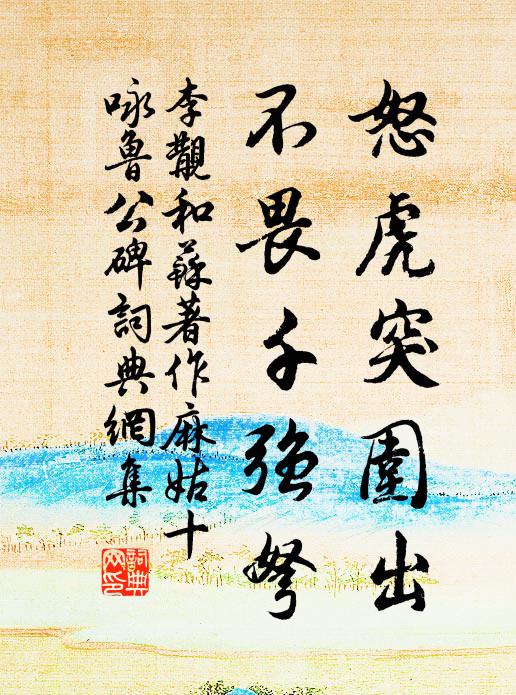 怒虎突圍出
不畏千強弩
李覯和蘇著作麻姑十
咏魯公碑詞典網集
詞典
网印